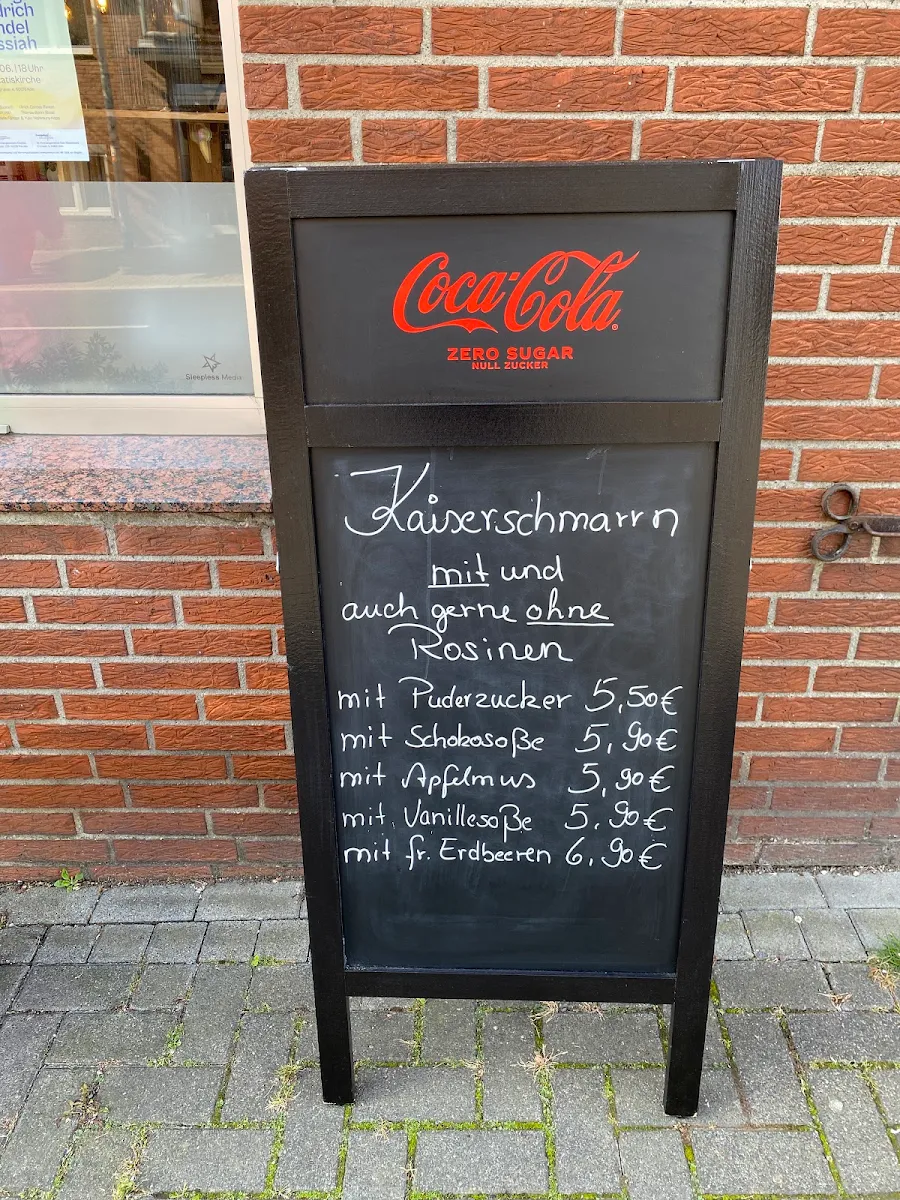 ssiah
06. | 18 Uhr
Coca-Cola
ZERO SUGAR
NULL ZUCKER
Sleepless Media
Kaiserschmarrn
mit und
auch gerne ohne
Rosinen
mit Puderzucker 5,50€
mit Schokosoße 5,90€
mit Apfelmus 5,90€
mit Vanillesoße 5,90€
mit fr. Erdbeeren 6,90€